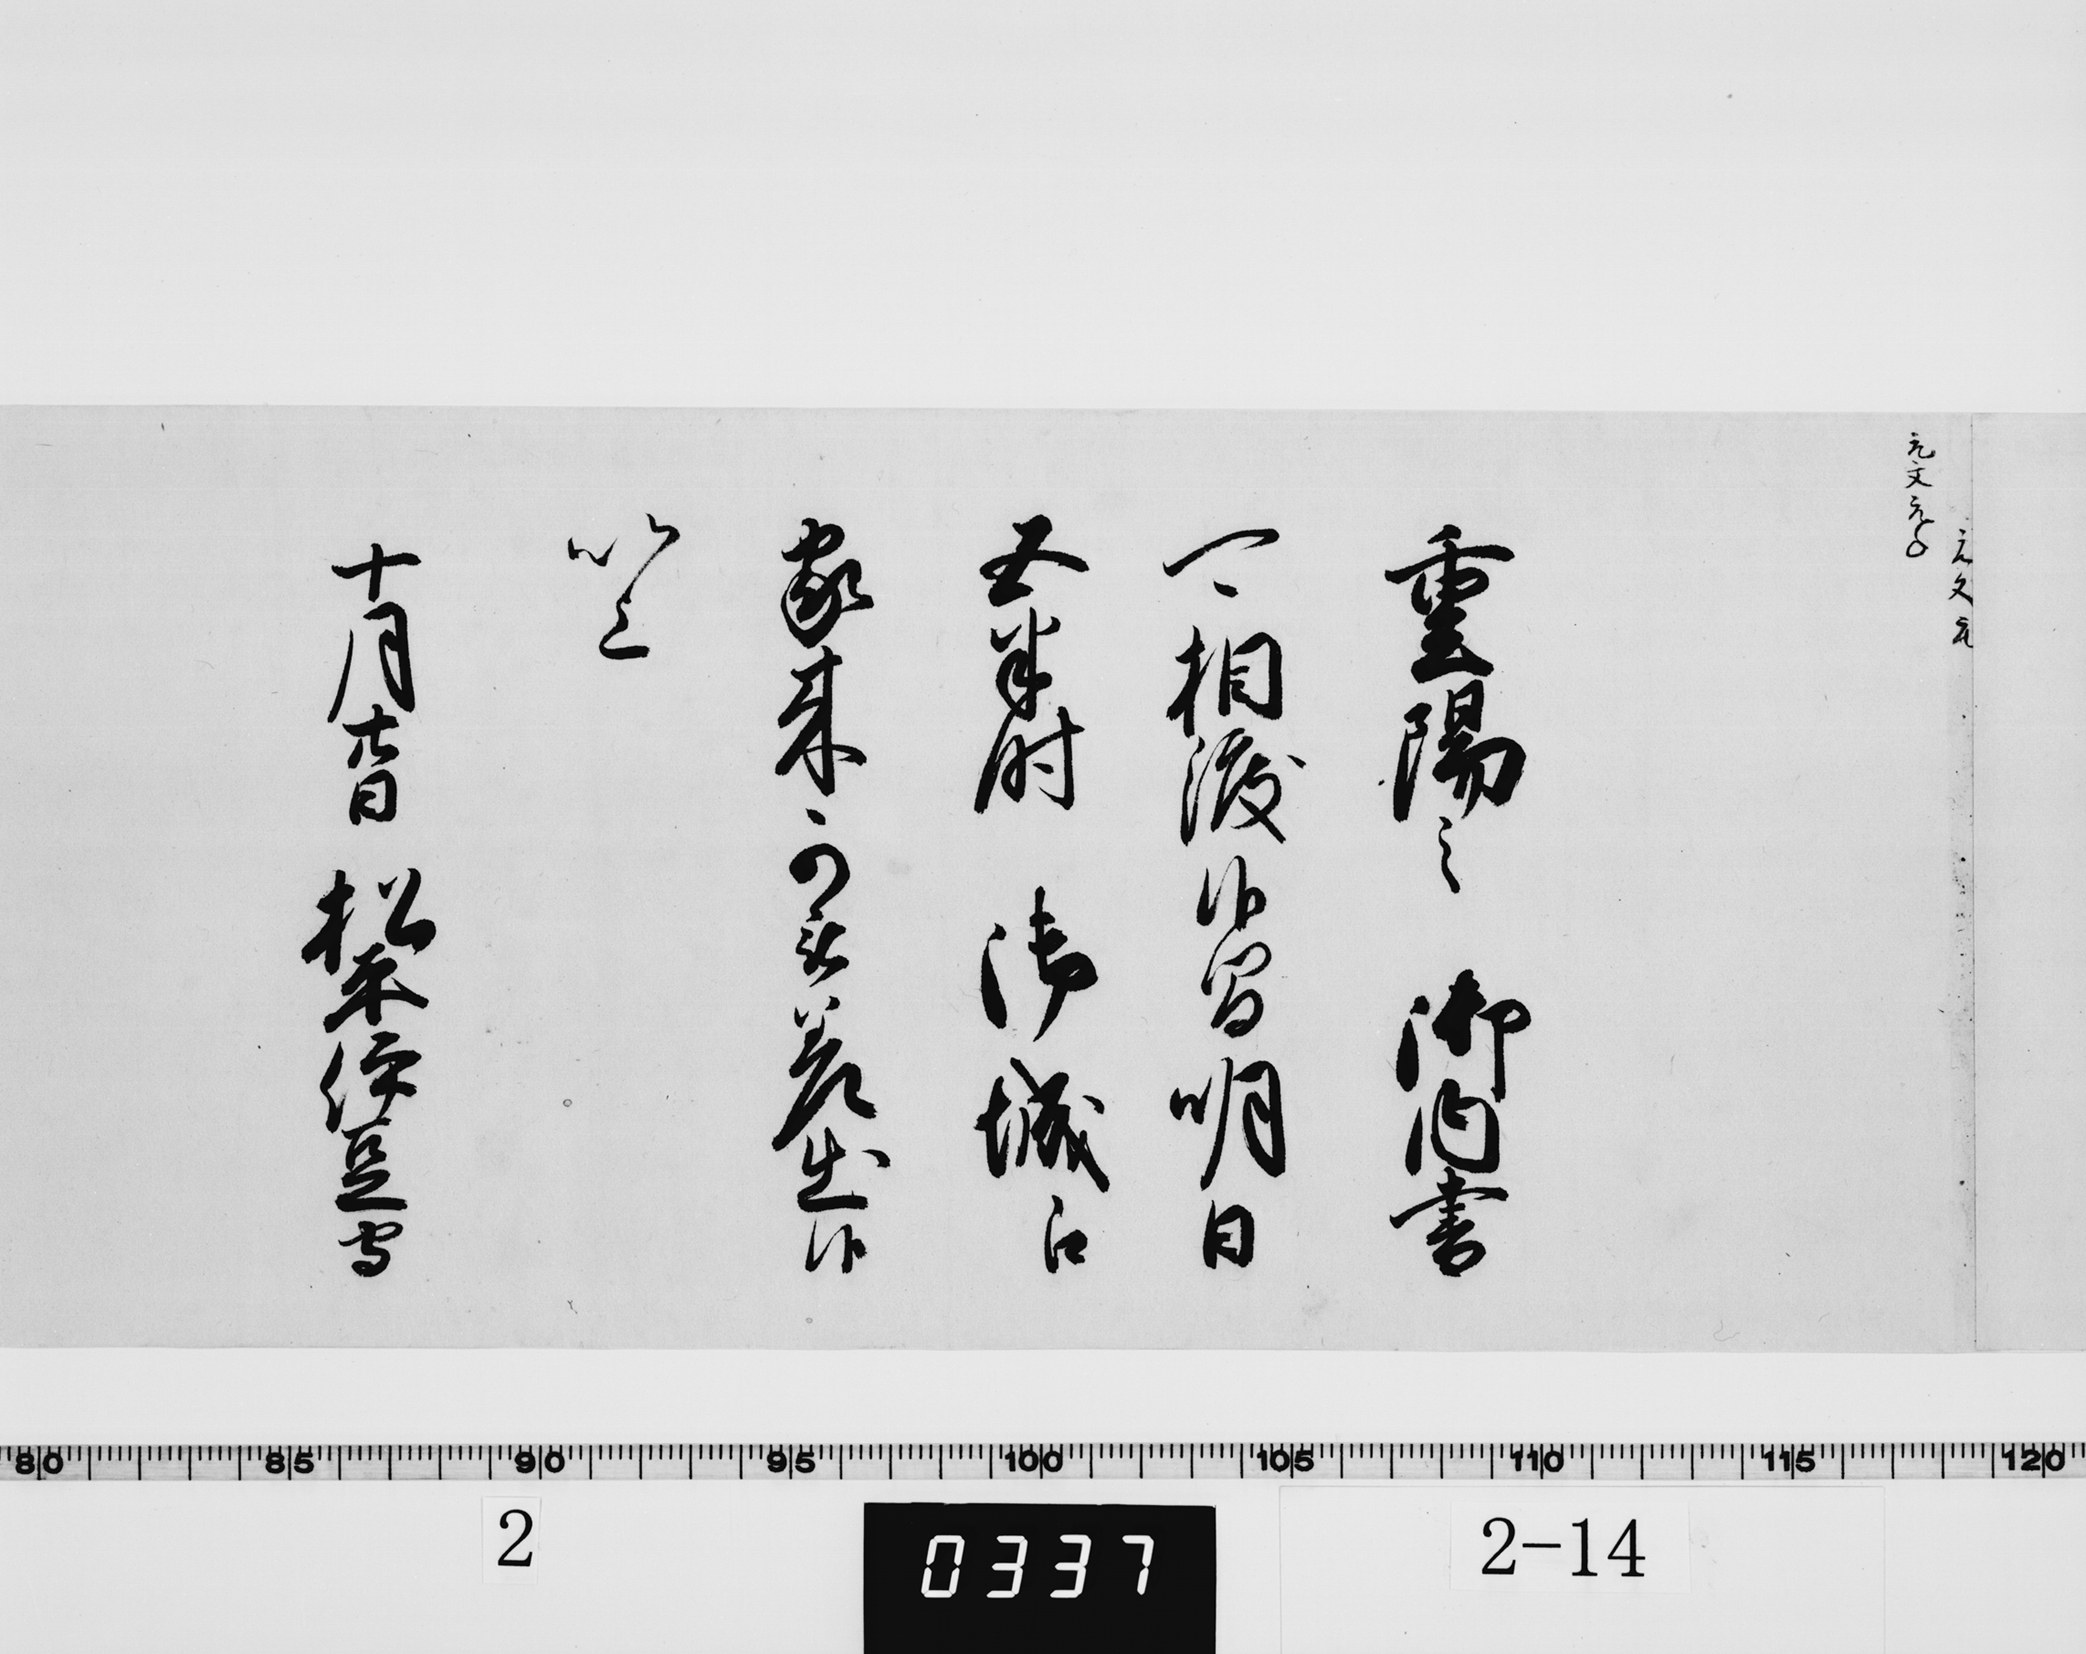 元文元
元文元
重陽之御内書
可相渡候間明日
五半時御城江
家来可被差出候
以上
十月廿日 松平伊豆守
80 85 90 95 100 105 110 115 120
2
0337
2-14